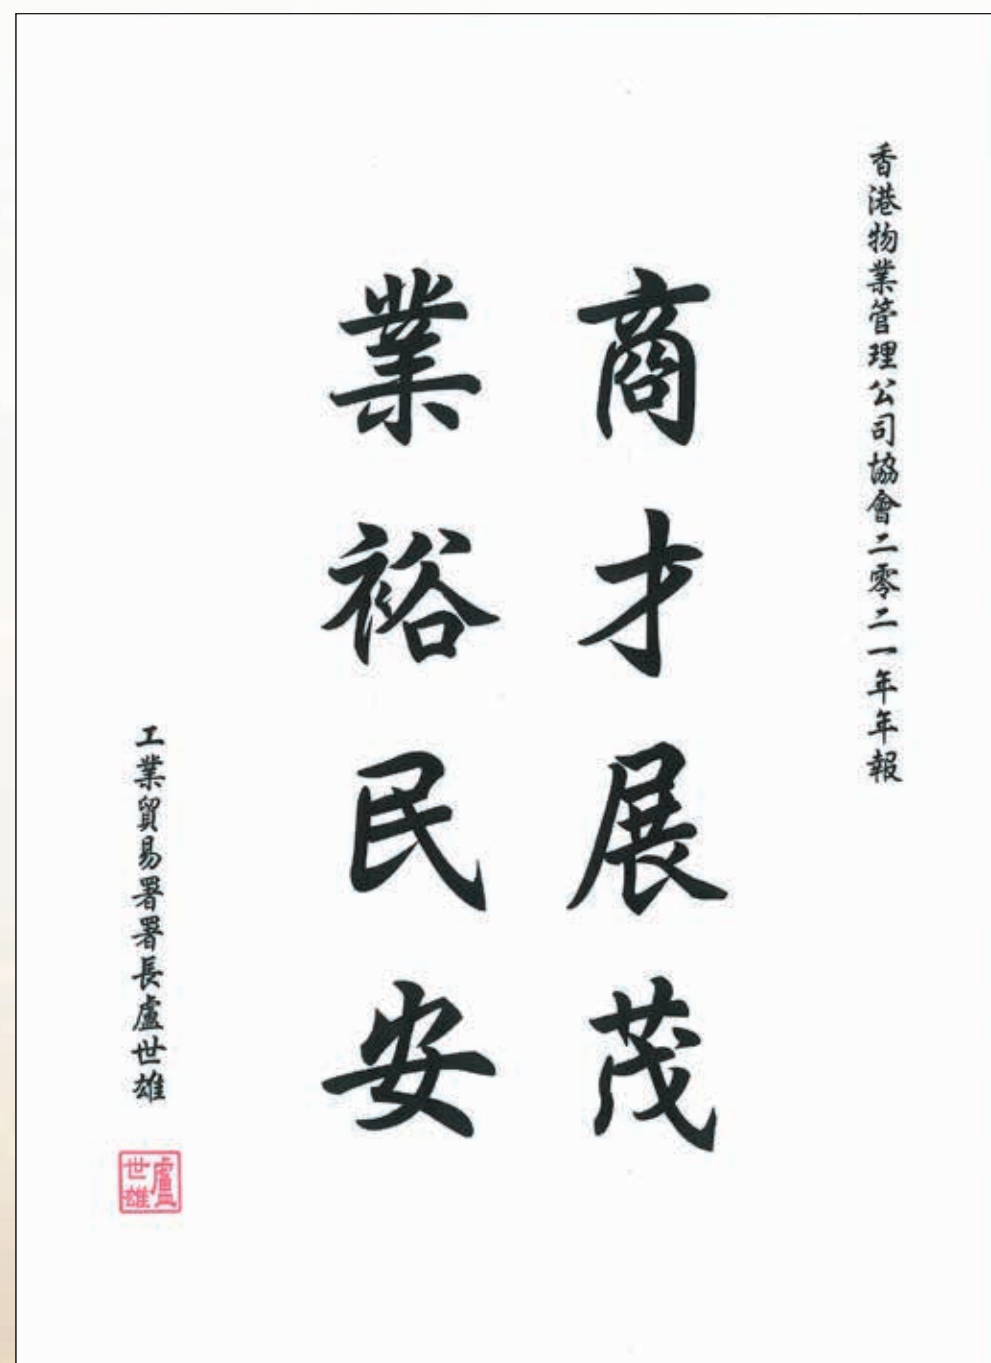 香港物業管理公司協會二零二一年年報
商才展茂
業裕民安
工業貿易署署長盧世雄
盧世雄